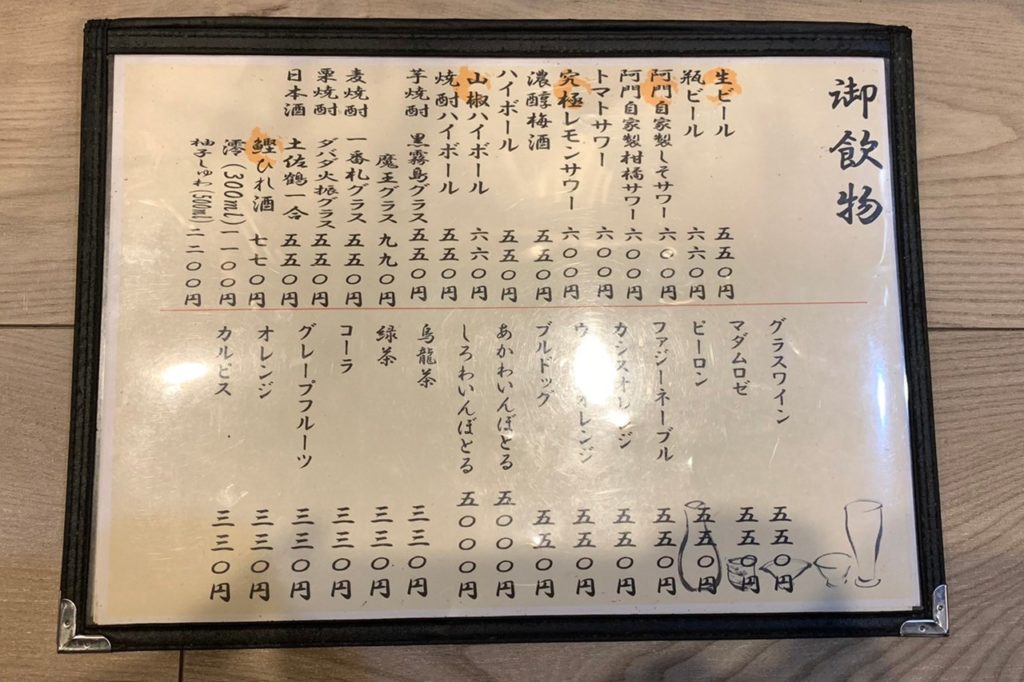 御飲物
生ビール 五五〇円
瓶ビール 六六〇円
阿門自家製しそサワー 六〇〇円
阿門自家製柑橘サワー 六〇〇円
トマトサワー 六〇〇円
究極レモンサワー 六〇〇円
濃醇梅酒 五五〇円
ハイボール 五五〇円
山椒ハイボール 六六〇円
焼酎ハイボール 五五〇円
芋焼酎 黒霧島グラス 五五〇円
魔王グラス 九九〇円
麦焼酎 一番札グラス 五五〇円
栗焼酎 ダバダ火振グラス 五五〇円
日本酒 土佐鶴一合 五五〇円
鰹ひれ酒 七七〇円
澪(300ml) 一一〇〇円
柚子しゅわ(500ml) 二二〇〇円
グラスワイン 五五〇円
マダムロゼ 五五〇円
ピーロン 五五〇円
ファジーネーブル 五五〇円
カシスオレンジ 五五〇円
ウ オレンジ 五五〇円
ブルドック 五五〇円
あかわいんぼとる 五〇〇〇円
しろわいんぼとる 五〇〇〇円
烏龍茶 三三〇円
緑茶 三三〇円
コーラ 三三〇円
グレープフルーツ 三三〇円
オレンジ 三三〇円
カルピス 三三〇円